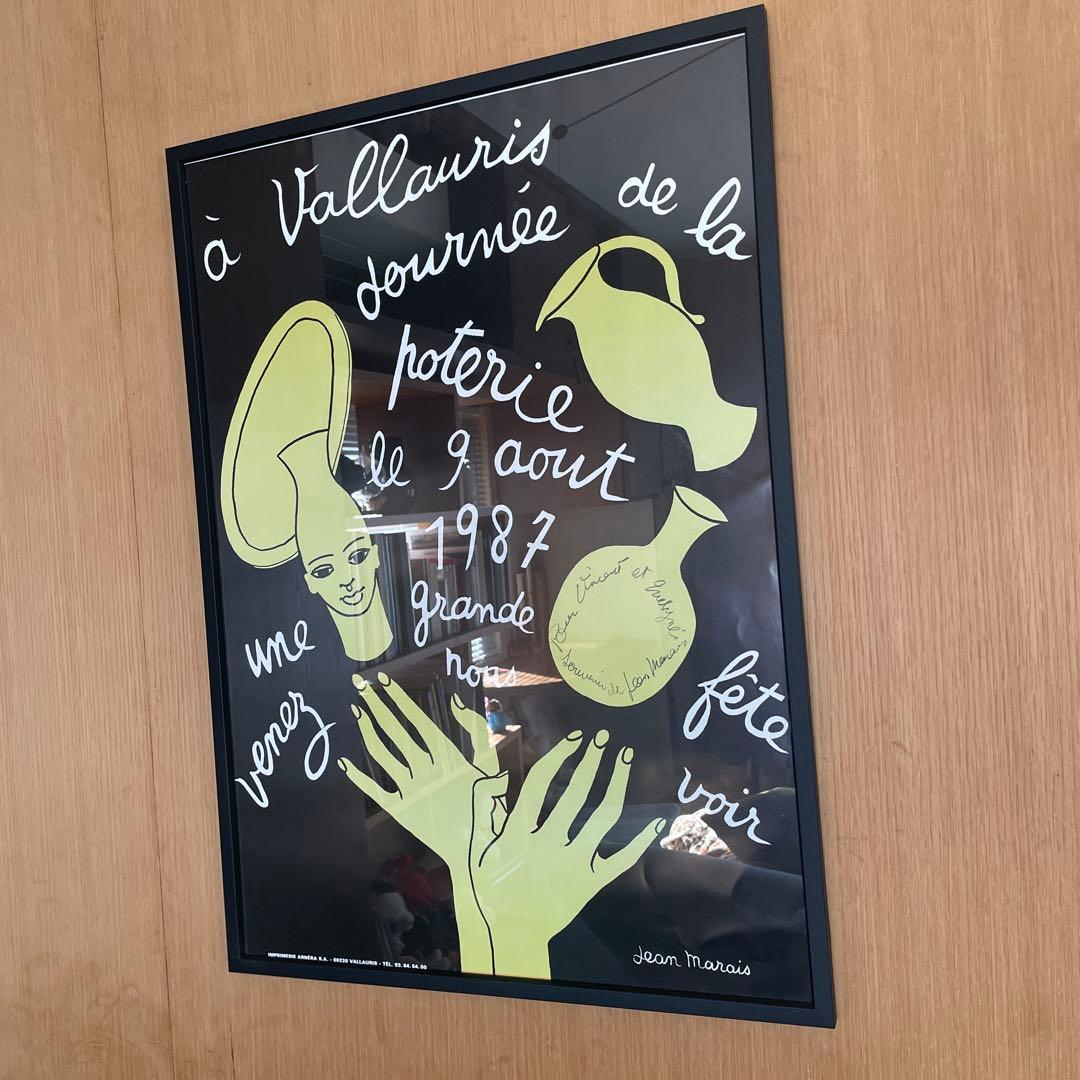 à Vallauris
Journée de la
poterie
le 9 aout
1987
une grande fête
venez nous voir
Pour Vincent et
Souvenir de Jean Marais
Jean Marais
IMPRIMERIE ARNÉRA S.A. - 06220 VALLAURIS - TÉL. 93. 64. 64. 00